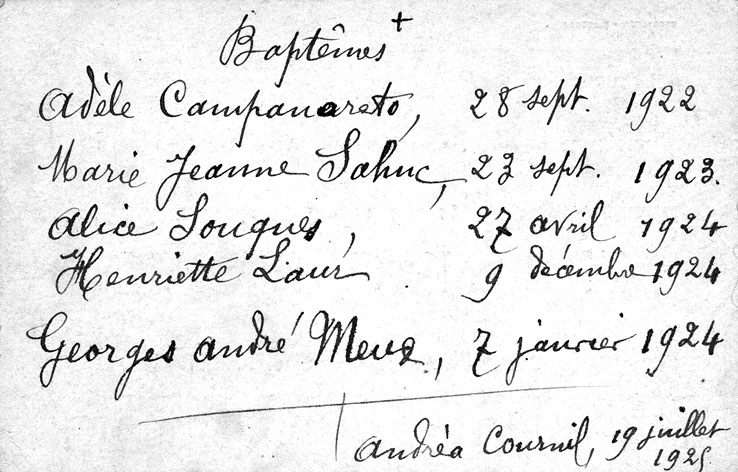 Baptêmes +
Adèle Campanareto, 28 sept. 1922
Marie Jeanne Sahuc, 23 sept. 1923.
Alice Souques, 27 avril 1924
Henriette Laur 9 décembre 1924
Georges André Meuz, 7 janvier 1924
Andréa Cournil, 19 juillet
1925